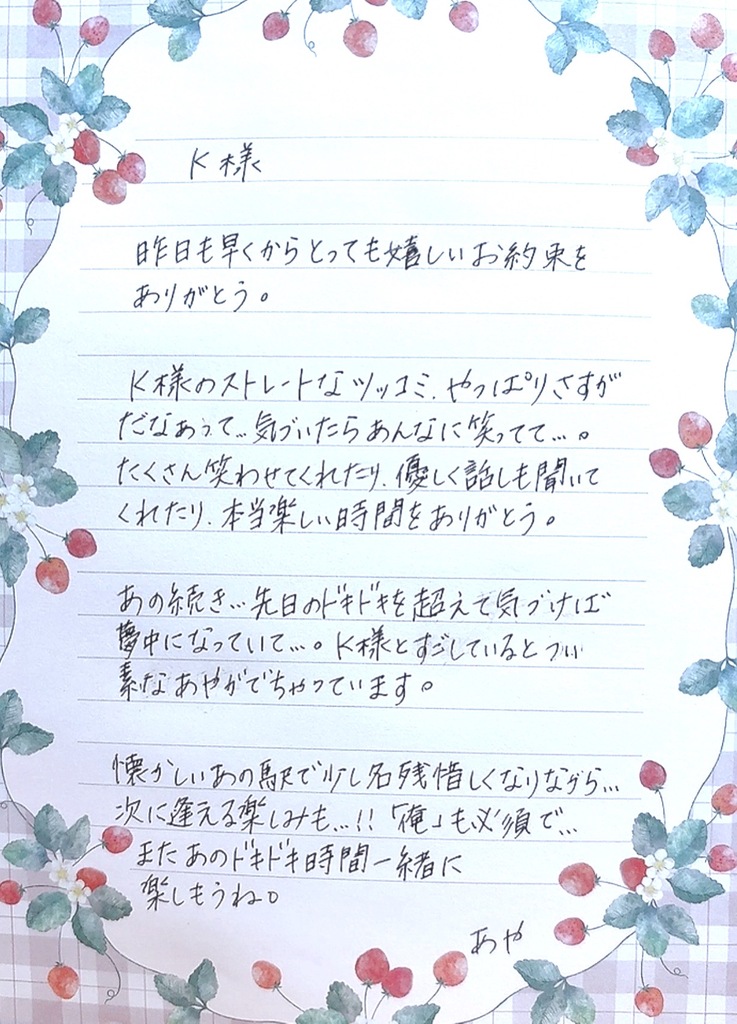 K様
昨日も早くからとっても嬉しいお約束を
ありがとう。
K様のストレートなツッコミ、やっぱりさすが
だなあって…気づいたらあんなに笑ってて…。
たくさん笑わせてくれたり、優しく話しも聞いて
くれたり、本当楽しい時間をありがとう。
あの続き…先日のドキドキを超えて気づけば
夢中になっていて…。K様とすごしているとつい
素なあやがでちゃっています。
懐かしいあの駅で少し名残惜しくなりながら…
次に逢える楽しみも…!!「俺」も必須で…
またあのドキドキ時間一緒に
楽しもうね。
あや